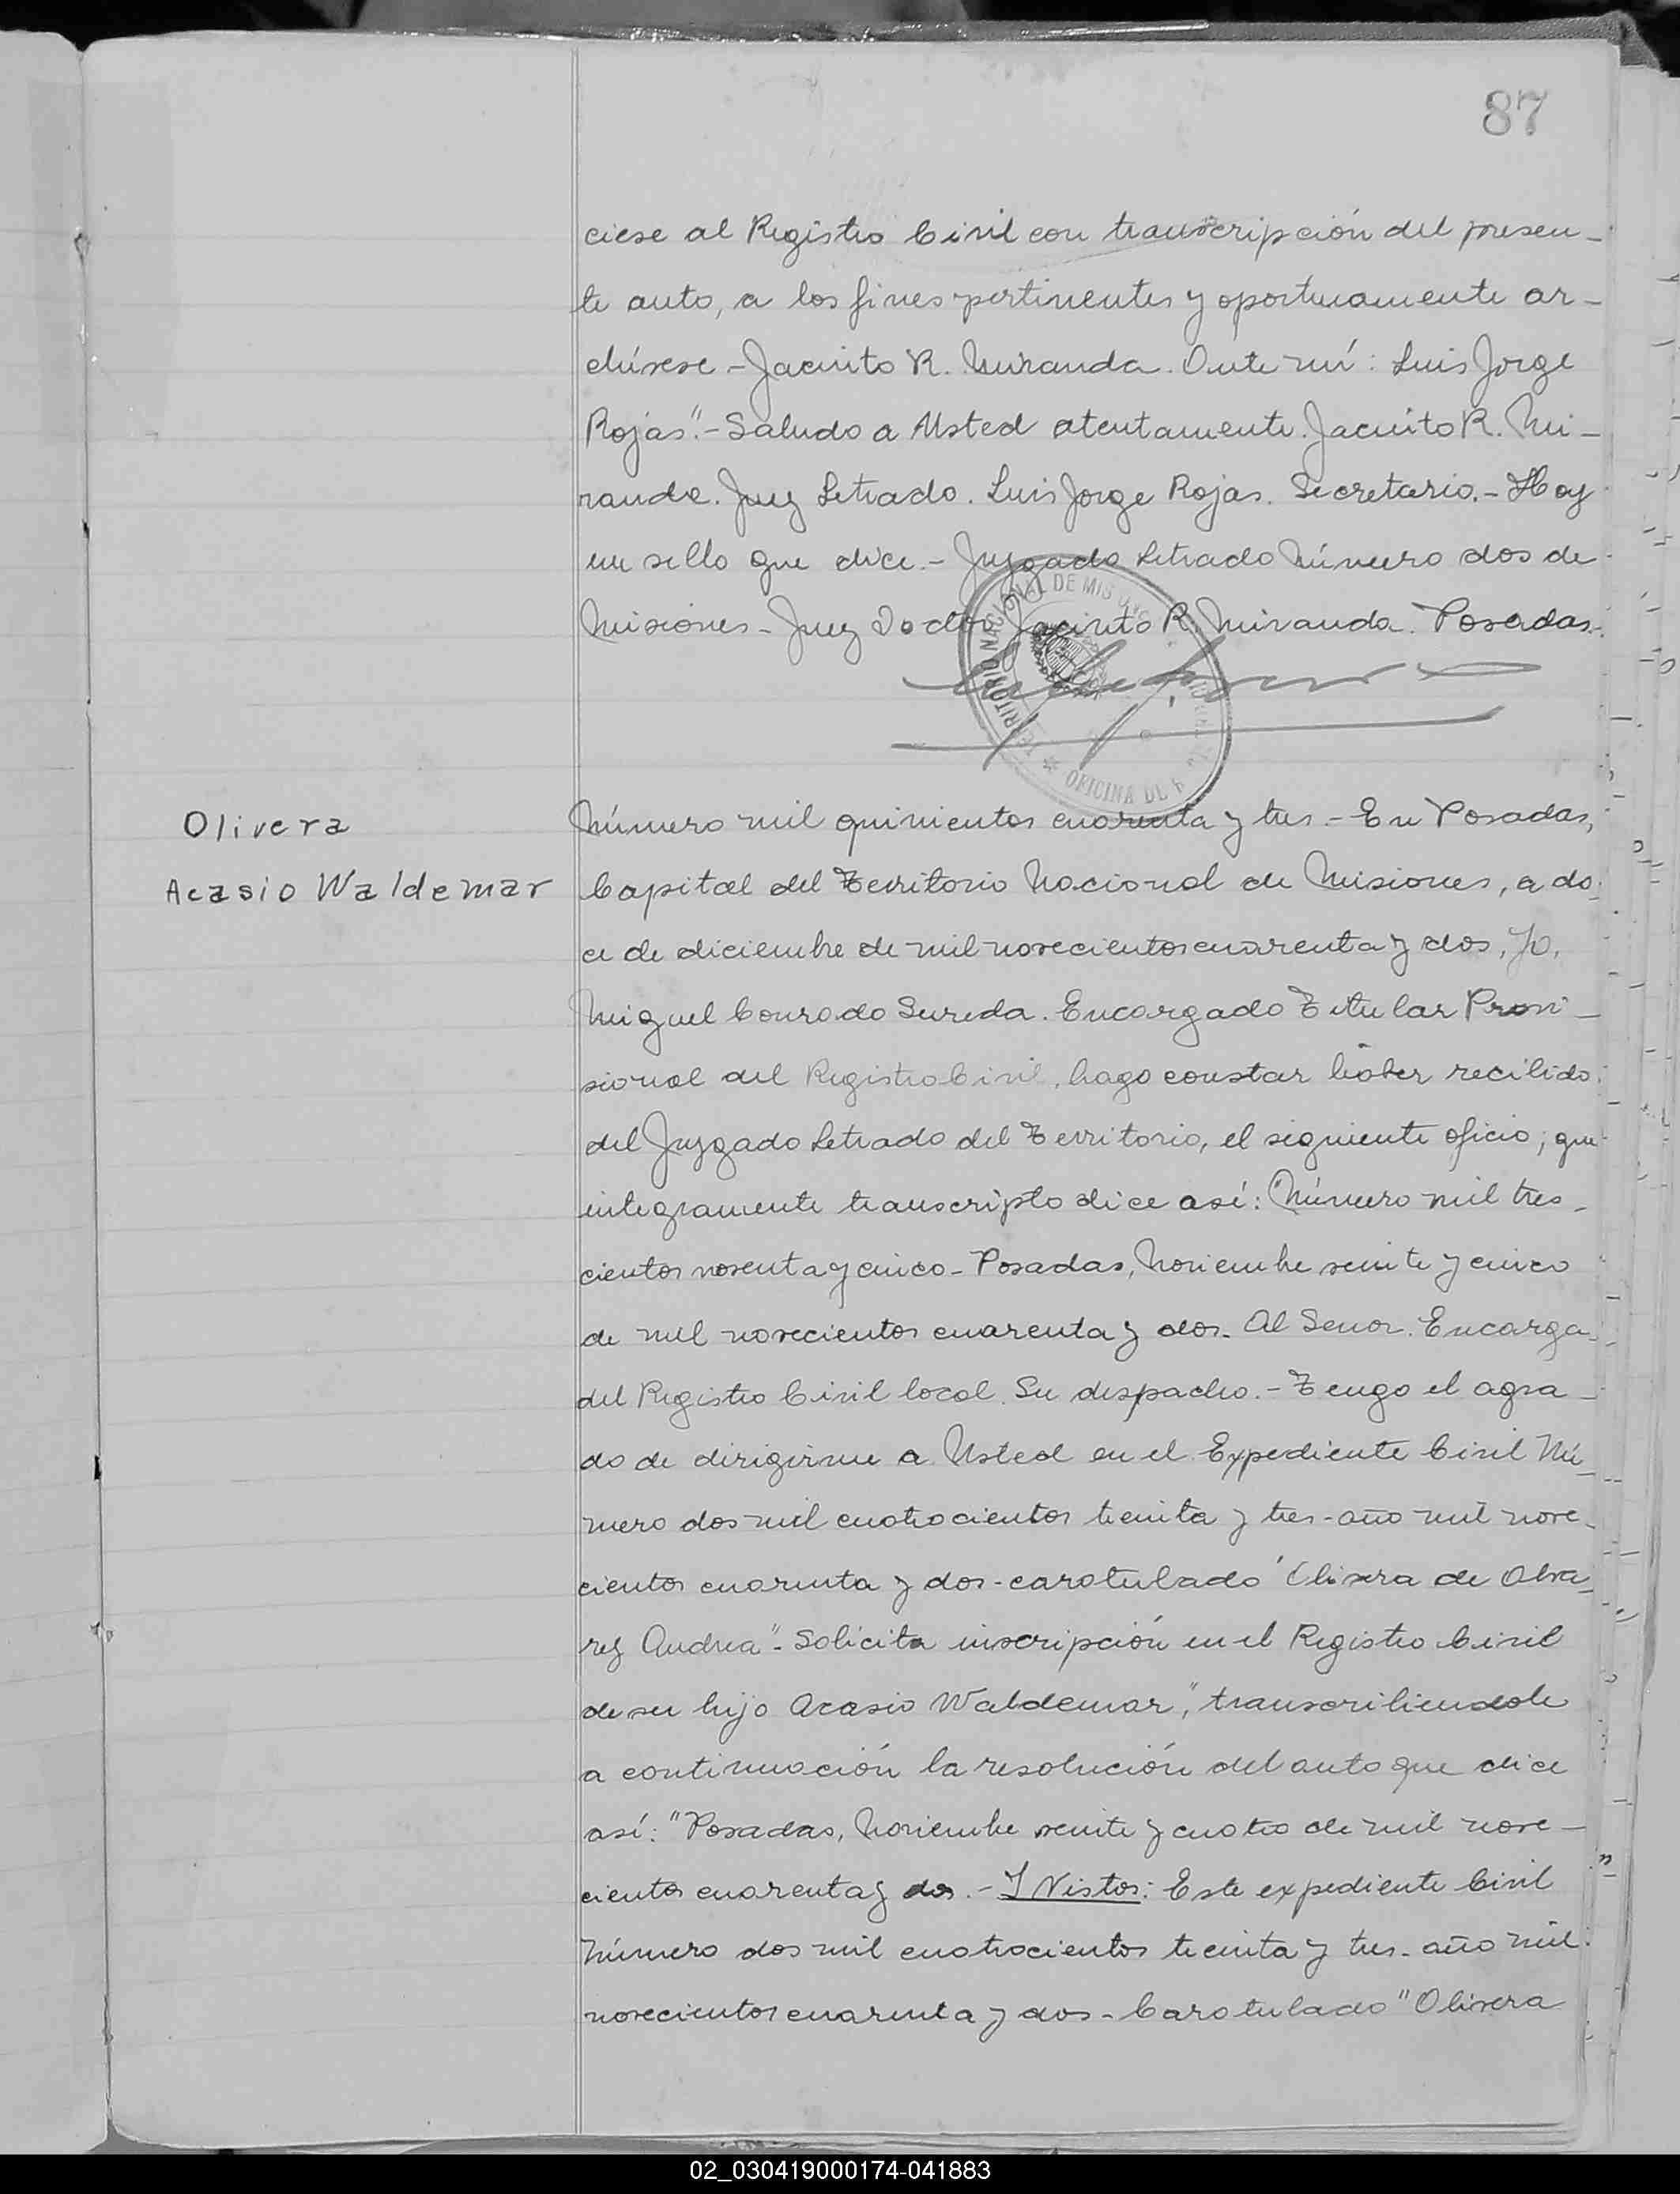 87
ciese al Registro Civil con transcripción del presen-
te auto, a los fines pertinentes y oportunamente ar-
chívese - Jacinto R. Miranda. Ante mí: Luis Jorge
Rojas".- Saludo a Usted atentamente. Jacinto R. Mi-
randa. Juez Letrado. Luis Jorge Rojas. Secretario.- Hay
un sello que dice.- Juzgado Letrado Número dos de
Misiones - Juez Doctor Jacinto R. Miranda. Posadas.-
NACIONAL DE MISIONES
OFICINA DE
Olivera
Acasio Waldemar
Número mil quinientos cuarenta y tres.- En Posadas,
Capital del Territorio Nacional de Misiones, a do-
ce de diciembre de mil novecientos cuarenta y dos, Yo,
Miguel Conrado Sureda. Encargado Titular Provi-
sional del Registro Civil, hago constar haber recibido
del Juzgado Letrado del Territorio, el siguiente oficio; que
integramente transcripto dice así: "Número mil tres-
cientos noventa y cinco - Posadas, Noviembre veinte y cinco
de mil novecientos cuarenta y dos - Al Senor. Encarga-
del Registro Civil local. Su despacho.- Tengo el agra-
do de dirigirme a Usted en el Expediente Civil Nú-
mero dos mil cuatrocientos treinta y tres - año mil nove-
cientos cuarenta y dos - carotulado "Olivera de Alva-
rez Andrea" - Solicita inscripción en el Registro Civil
de su hijo Acasio Waldemar", transcribiendole
a continuación la resolución del auto que dice
así: "Posadas, Noviembre veinte y cuatro de mil nove-
cientos cuarenta y dos.- Y Vistos: Este expediente Civil
Número dos mil cuatrocientos treinta y tres - año mil
novecientos cuarenta y dos - Carotulado "Olivera
02_030419000174-041883